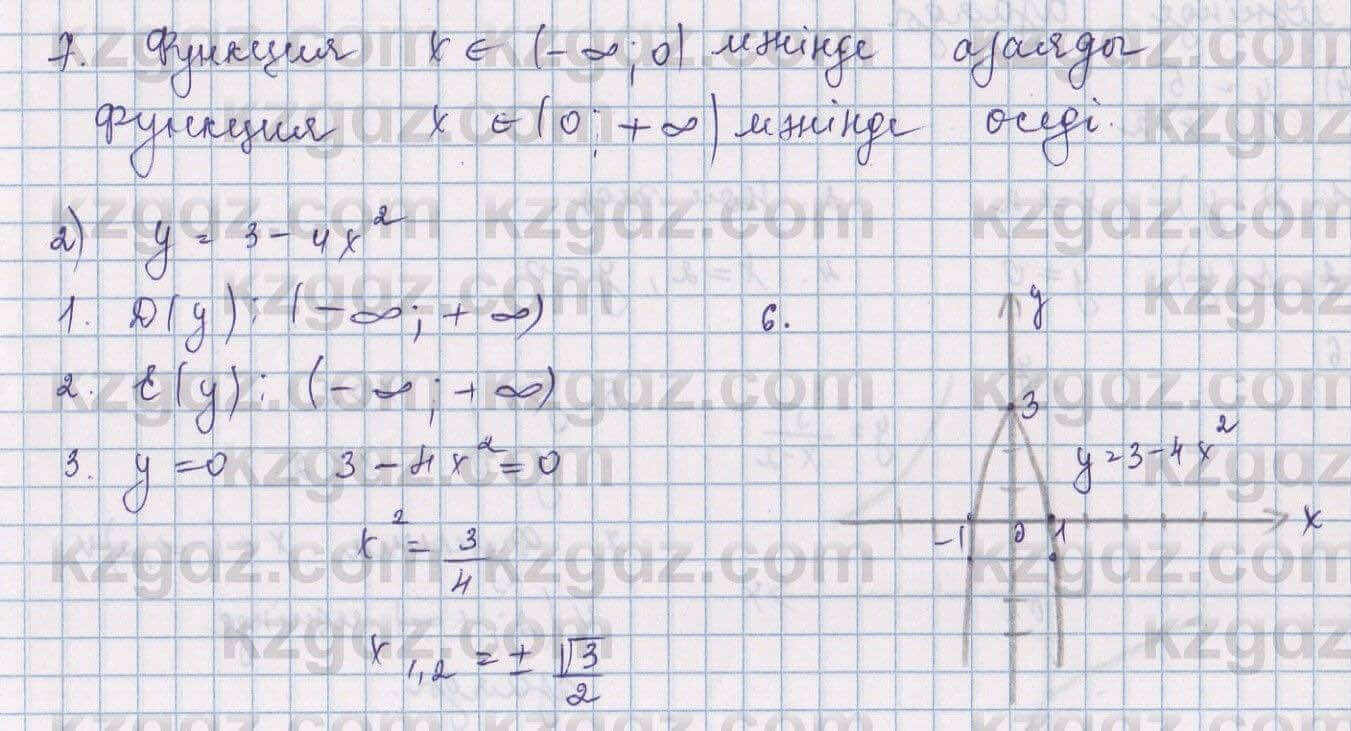 7. Функция x ∈ (-∞; 0) мәнінде азаяды
Функция x ∈ (0; +∞) мәнінде өседі.
2) y = 3 - 4x²
1. D(y): (-∞; +∞)
2. E(y): (-∞; +∞)
3. y = 0 3 - 4x² = 0
x² = 3/4
x₁,₂ = ± √3/2
6.
y
3
y = 3 - 4x²
-1 0 1 x
kzgdz.com